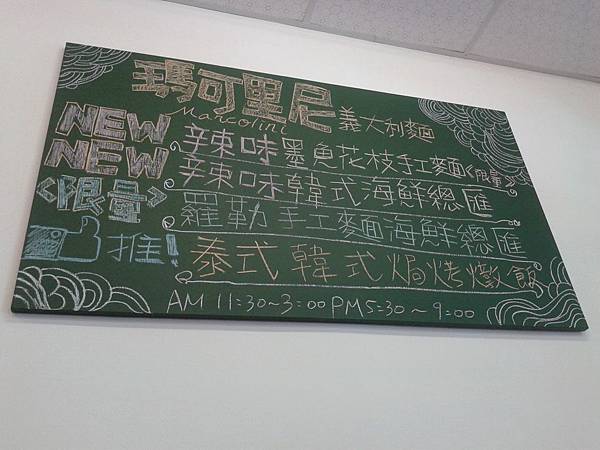 瑪可里尼義大利麵
Marcolini
NEW 辣味墨魚花枝手工麵<限量>
NEW 辣味韓式海鮮總匯
<限量> 羅勒手工麵海鮮總匯
推! 泰式韓式焗烤燉飯
AM 11:30~3:00 PM 5:30~9:00